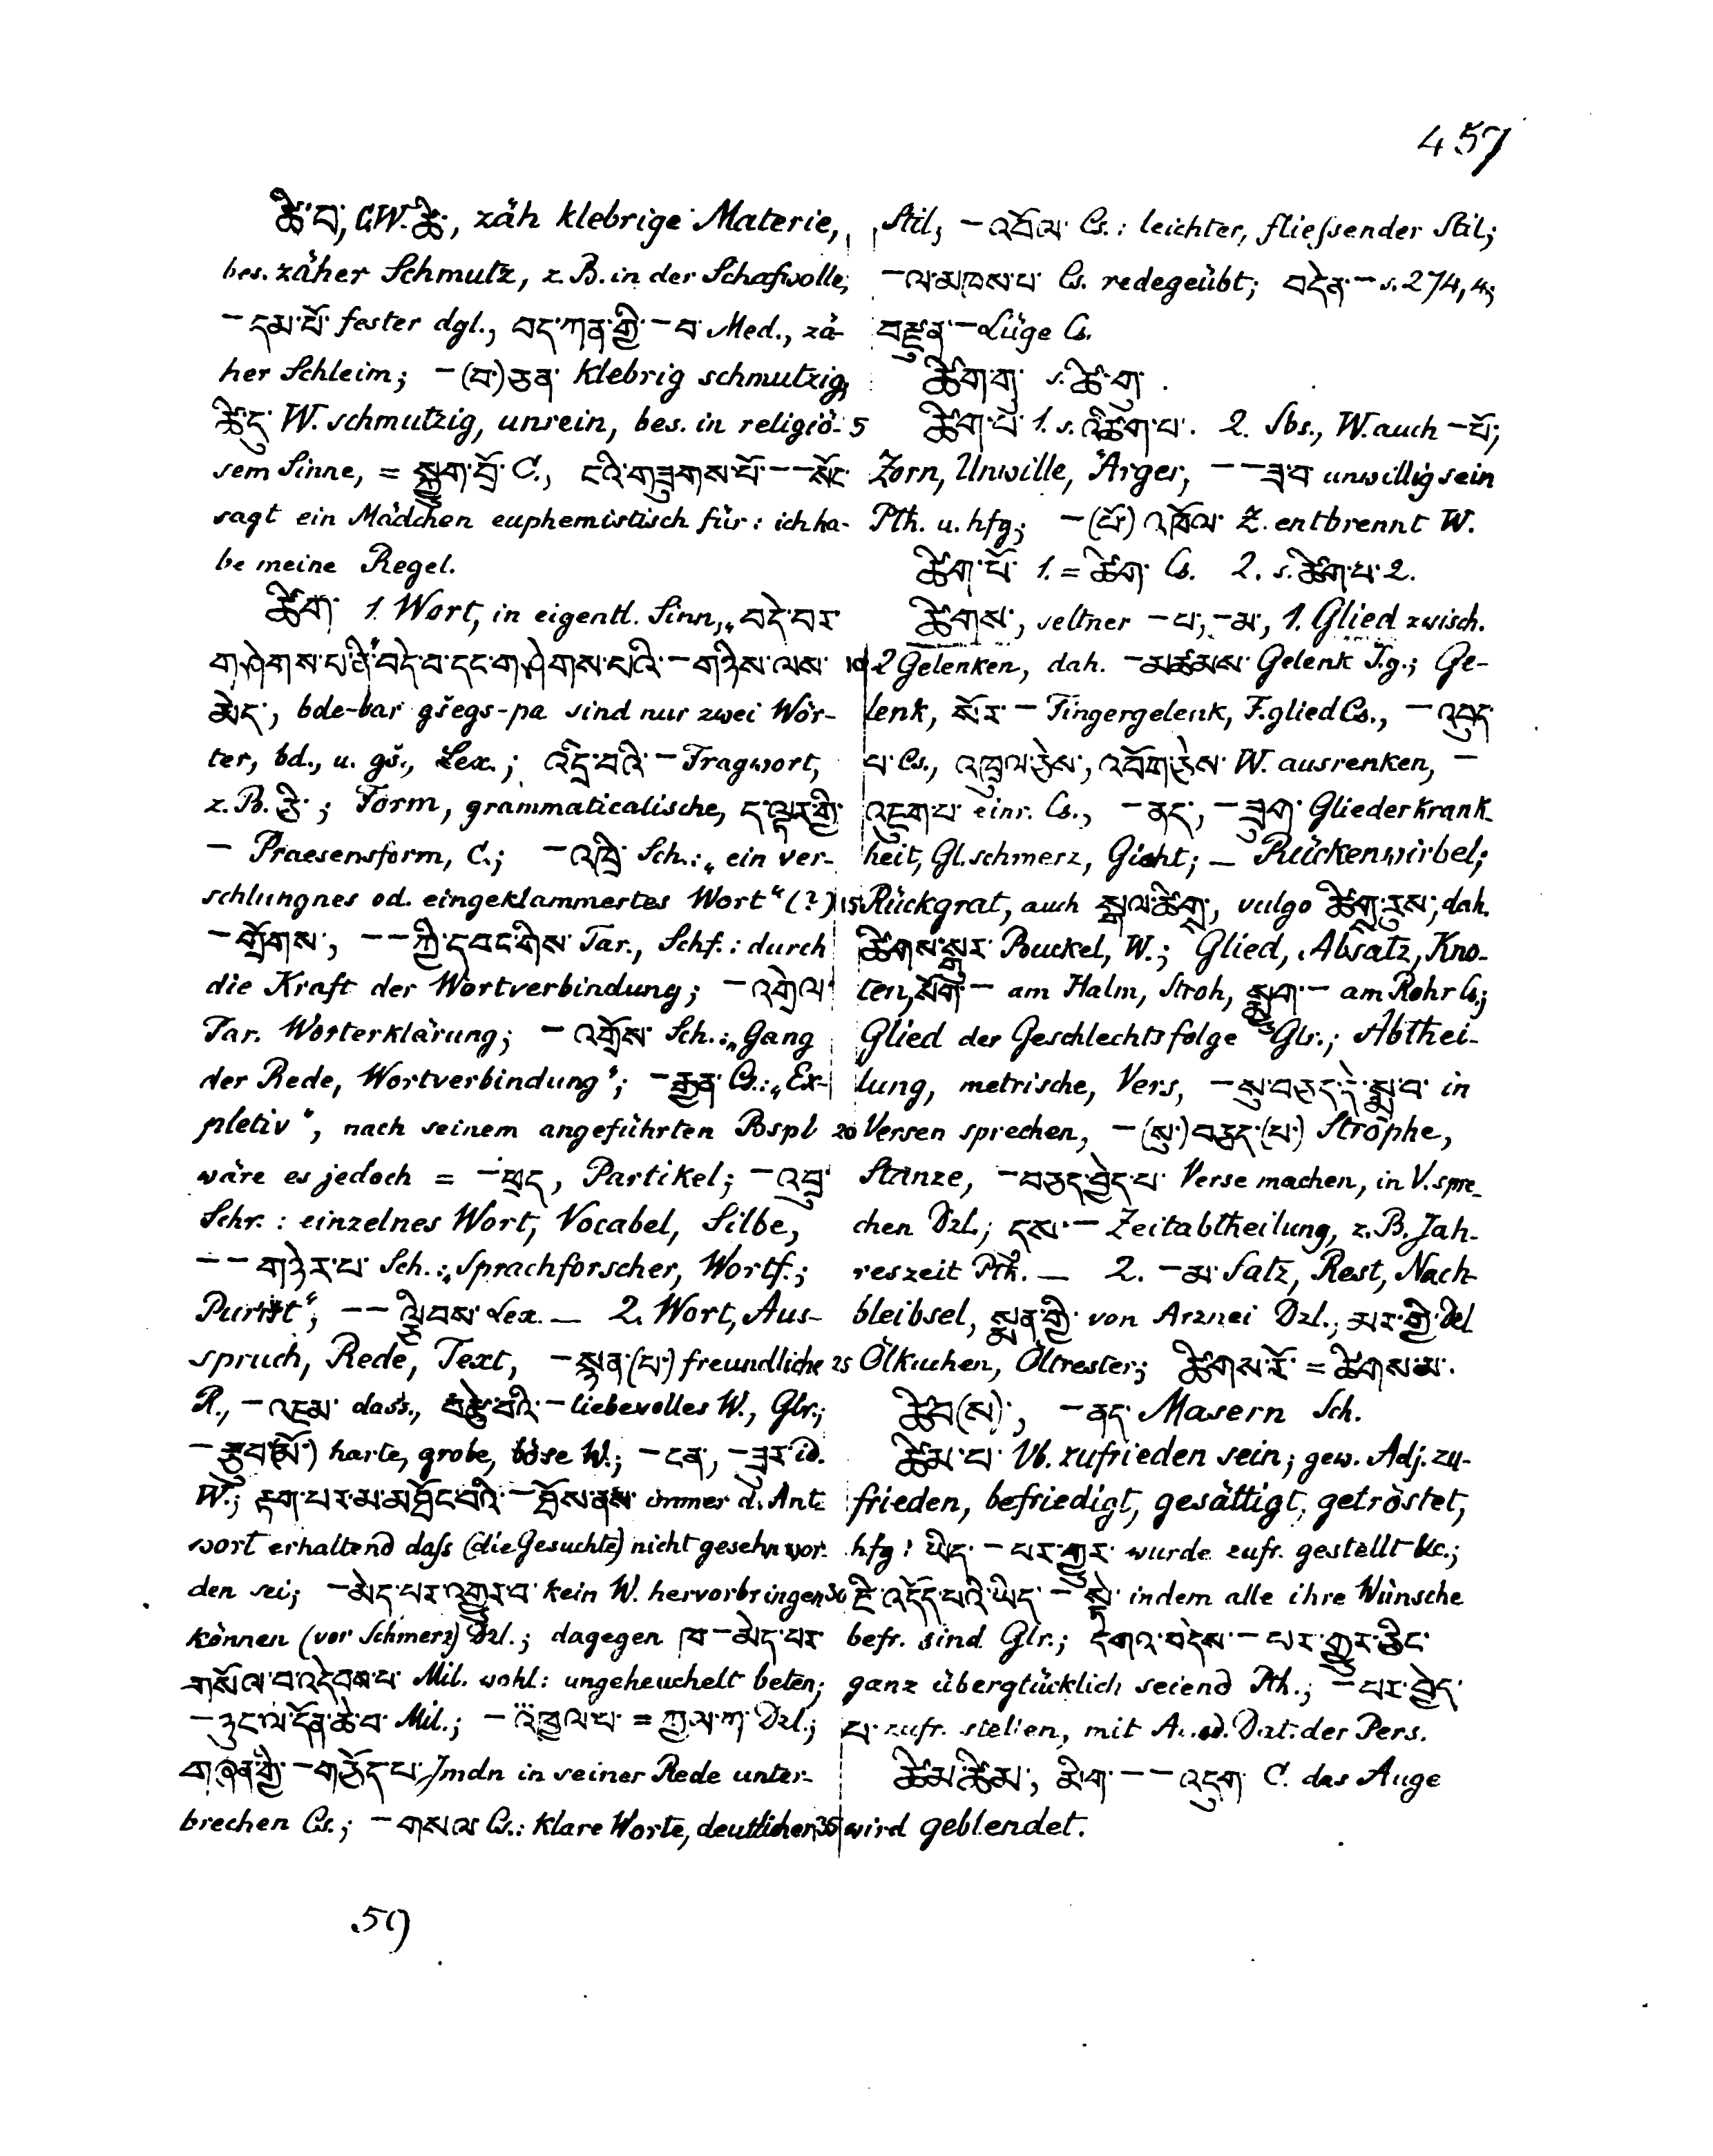 457
ཚི་བ, C.W. ཚི་, zäh klebrige Materie,
bes. zäher Schmutz, z.B. in der Schafwolle;
– དམ་པོ་ fester dgl., བད་ཀན་གྱི་ – བ་ Med., zä-
her Schleim; – (བ་)ཅན་ klebrig schmutzig,
ཚི་དུ་ W. schmutzig, unrein, bes. in religiö-
sem Sinne, = སྐྱུག་བྲོ་ C., ངའི་གཟུགས་པོ་ – – སོང་
sagt ein Mädchen euphemistisch für: ich ha-
be meine Regel.
ཚིག་ 1. Wort, in eigentl. Sinn, „བདེ་བར་
གཤེགས་པ་ནི་“བདེ་བ་དང་གཤེགས་པའི་ – གཉིས་ལས་
མེད་, bde-bar gšegs-pa sind nur zwei Wör-
ter, bd., u. gš., Lex.; འདྲི་བའི་ – Fragwort,
z.B. ཅི་; Form, grammaticalische, ད་ལྟར་གྱི་
– Praesensform, C.; – འཁྲི་ Sch.: „ein ver-
schlungnes od. eingeklammertes Wort“ (?)
– གྲོགས་, – – ཀྱི་དབང་གིས་ Tar., Schf.: durch
die Kraft der Wortverbindung; – འགྲེལ་
Tar. Worterklärung; – འགྲོས་ Sch.: „Gang
der Rede, Wortverbindung“; – རྒྱན་ Cs.: „Ex-
pletiv“, nach seinem angeführten Bspl
wäre es jedoch = – ཕྲད, Partikel; – འབྲུ་
Schr.: einzelnes Wort, Vocabel, Silbe,
– – གཉེར་པ་ Sch.: „Sprachforscher, Wortf.;
Purist“; – – ལྷིབས་ Lex. — 2. Wort, Aus-
spruch, Rede, Text, – སྙན་(པ་) freundliche
R., – འཇམ་ dass., བརྩེ་བའི་ – liebevolles W., Glr.;
– རྩུབ་(མོ་) harte, grobe, böse W.; – ངན་, – ཟུར་ id.
W.; རྟག་པར་མ་མཐོང་བའི་ – ཐོས་ནས་ immer d. Ant-
wort erhaltend dass (die Gesuchte) nicht gesehn wor-
den sei; – མེད་པར་འགྱུར་བ་ kein W. hervorbringen
können (vor Schmerz) Dzl.; dagegen ཁ – མེད་པར་
གསོལ་བ་འདེབས་པ་ Mil. wohl: ungeheuchelt beten;
– ཉུང་ལ་དོན་ཆེ་བ་ Mil.; – འཕྱལ་པ་ = ཀྱལ་ཀ་ Dzl.;
གཞན་གྱི་ – གཅོད་པ་ Jmdn in seiner Rede unter-
brechen Cs.; – གསལ་ Cs.: klare Worte, deutlicher
Stil, – འབོལ་ Cs.: leichter, fliessender Stil;
– ལ་མཁས་པ་ Cs. redegeübt; བདེན་ – s. 274, 4;
བརྫུན་ – Lüge Cs.
ཚིག་གུ་ s. ཚི་གུ་.
5 ཚིག་པ་ 1. s. འཚིག་པ་. 2. Sbs., W. auch – པོ;
Zorn, Unwille, Ärger, – – ཟ་བ་ unwillig sein
Pth. u. hfg; – (པོ་) འཁོལ་ Z. entbrennt W.
ཚིག་པོ་ 1. = ཚིག་ Cs. 2. s. ཚིག་པ་ 2.
ཚིགས་, seltner – པ་, – མ་, 1. Glied zwisch.
10 2 Gelenken, dah. – མཚམས་ Gelenk F.g.; Ge-
lenk, སོར་ – Fingergelenk, F.glied Cs., – འབུད་
པ་ Cs., འཁྲུལ་ཅེས་, འབོག་ཅེས་ W. ausrenken, –
འཇུག་པ་ einr. Cs., – ནད་, – ཟུག་ Gliederkrank-
heit, Gl.schmerz, Gicht; — Rückenwirbel;
15 Rückgrat, auch སྒལ་ཚིག་, vulgo ཚིག་རུས་; dah.
ཚིགས་སྒུར་ Buckel, W.; Glied, Absatz, Kno-
ten, སོག་ – am Halm, Stroh, སྨྱུག་ – am Rohr Cs.;
Glied der Geschlechtsfolge Glr.; Abthei-
lung, metrische, Vers, – སུ་བཅད་དེ་སྨྲ་བ་ in
20 Versen sprechen, – (སུ་)བཅད་(པ་) Strophe,
Stanze, – བཅད་བྱེད་པ་ Verse machen, in V. spre-
chen Dzl.; དུས་ – Zeitabtheilung, z.B. Jah-
reszeit Pth. — 2. – མ་ Satz, Rest, Nach-
bleibsel, སྨན་གྱི་ von Arznei Dzl., མར་གྱི་ Del
25 Ölkuchen, Öltrester; ཚིགས་རོ་ = ཚིགས་མ་.
ཚིབ(ས)་, – ནད་ Masern Sch.
ཚིམ་པ་ Vb. zufrieden sein; gew. Adj. zu-
frieden, befriedigt, gesättigt, getröstet,
hfg: ཡིད་ – པར་གྱུར་ wurde zufr. gestellt &c.;
30 ཇི་འདོད་པའི་ཡིད་ – སྟེ་ indem alle ihre Wünsche
befr. sind Glr.; དགའ་བདེས་ – པར་གྱུར་ཅིང་
ganz überglücklich seiend Pth.; – པར་བྱེད་
པ་ zufr. stellen, mit Acc. od. Dat. der Pers.
ཚིམ་ཚིམ་, མིག་ – – འདུག་ C. das Auge
35 wird geblendet.
59